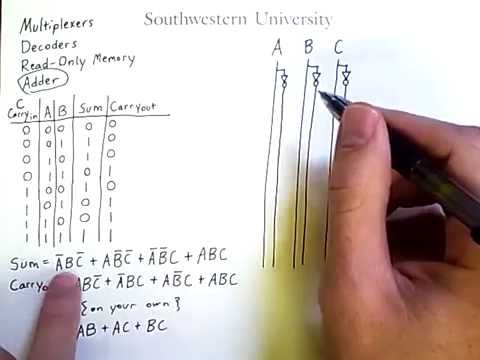 Southwestern University
Multiplexers
Decoders
Read-Only Memory
Adder
C
Carry in A B Sum Carryout
0 0 0 0 0
0 0 1 1 0
0 1 0 1 0
0 1 1 0 1
1 0 0 1 0
1 0 1 0 1
1 1 0 0 1
1 1 1 1 1
Sum = A̅BC̅ + AB̅C̅ + A̅B̅C + ABC
ABC̅ + A̅BC + AB̅C + ABC
{on your own}
AB + AC + BC
A B C